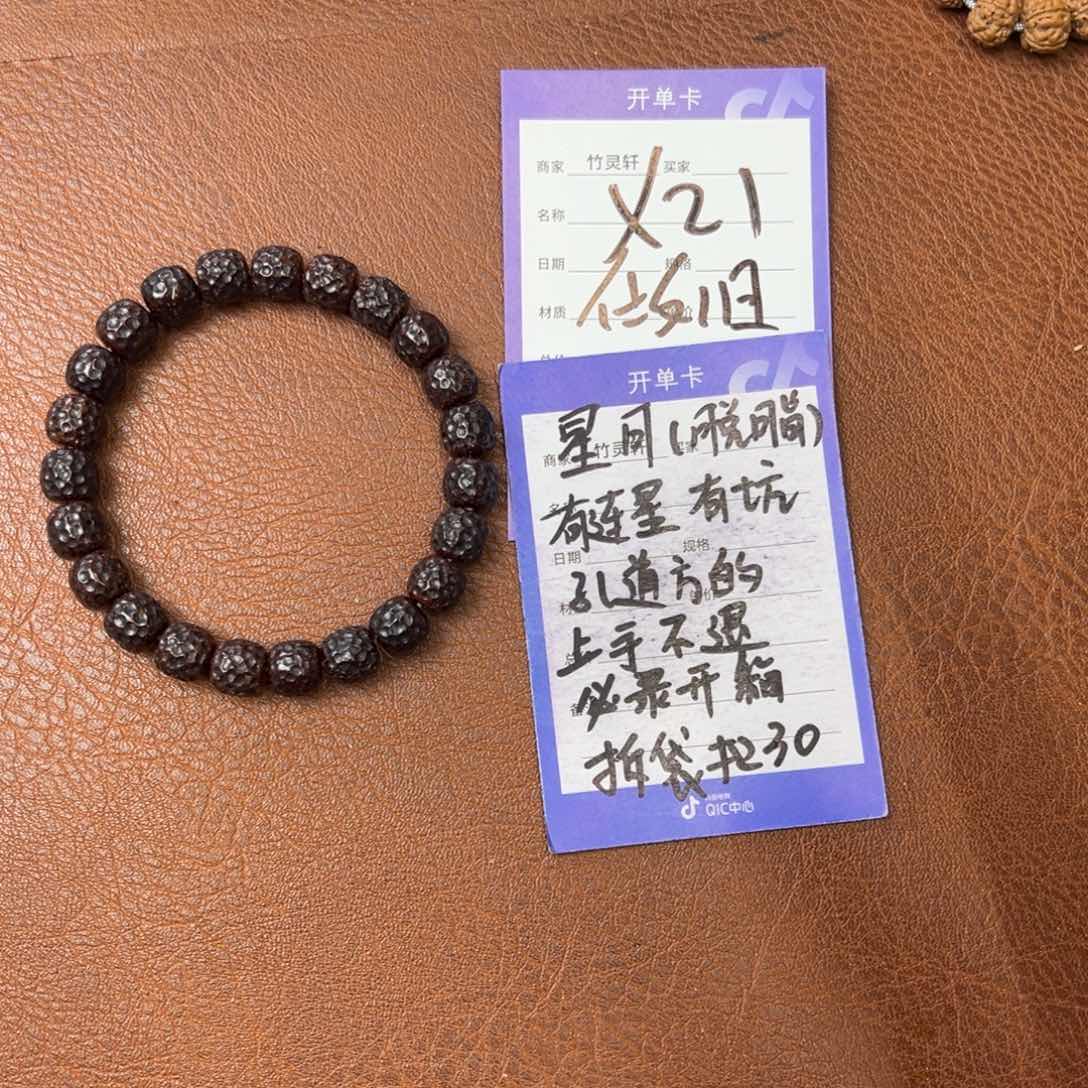 开单卡
商家 竹灵轩 买家
X21
名称
日期 规格
做旧
材质
开单卡
星月(脱脂)
商家 竹灵轩 买家
有连星 有坑
日期 规格
孔道方的
上手不退
必录开箱
拆袋扣30
QIC中心